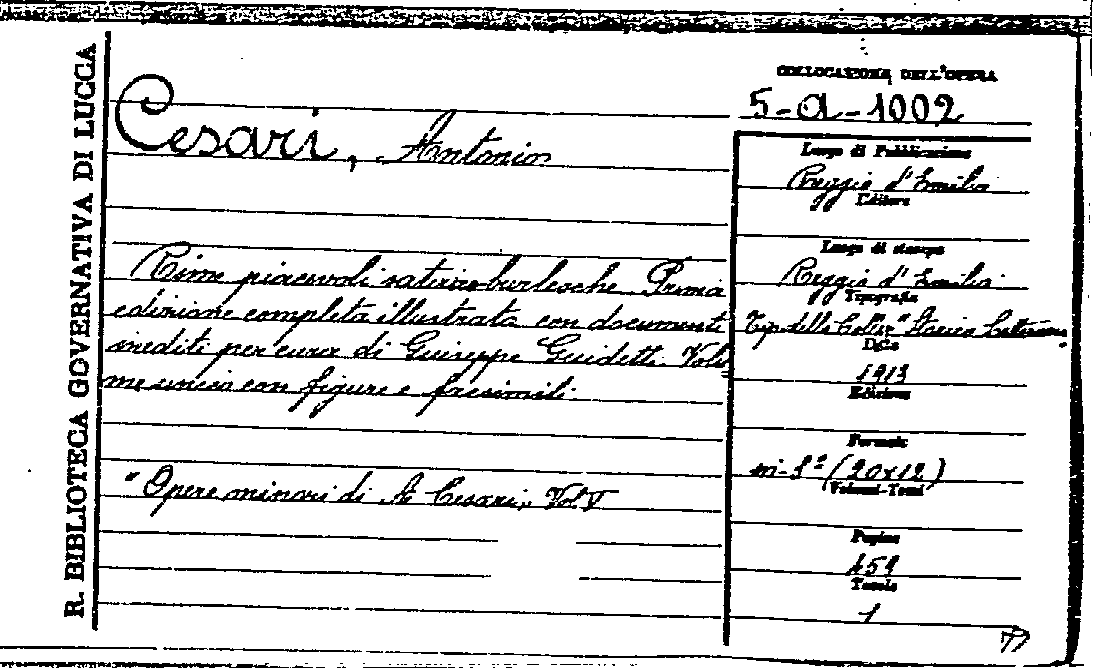 R. BIBLIOTECA GOVERNATIVA DI LUCCA
COLLOCAZIONE DELL'OPERA
5-a-1002
Cesari, Antonio
Rime piacevoli satirico-burlesche. Prima
edizione completa illustrata con documenti
inediti per cura di Giuseppe Guidetti. Volu
me unico con figure e facsimili.
"Opere minori di A. Cesari, Vol. V
Luogo di Pubblicazione
Reggio d'Emilia
Editore
Luogo di stampa
Reggio d'Emilia
Tipografia
Tip. della Collez.
Data
1913
Edizione
Formato
in-8º (20x12)
Volumi-Tomi
Pagine
459
Tavole
1